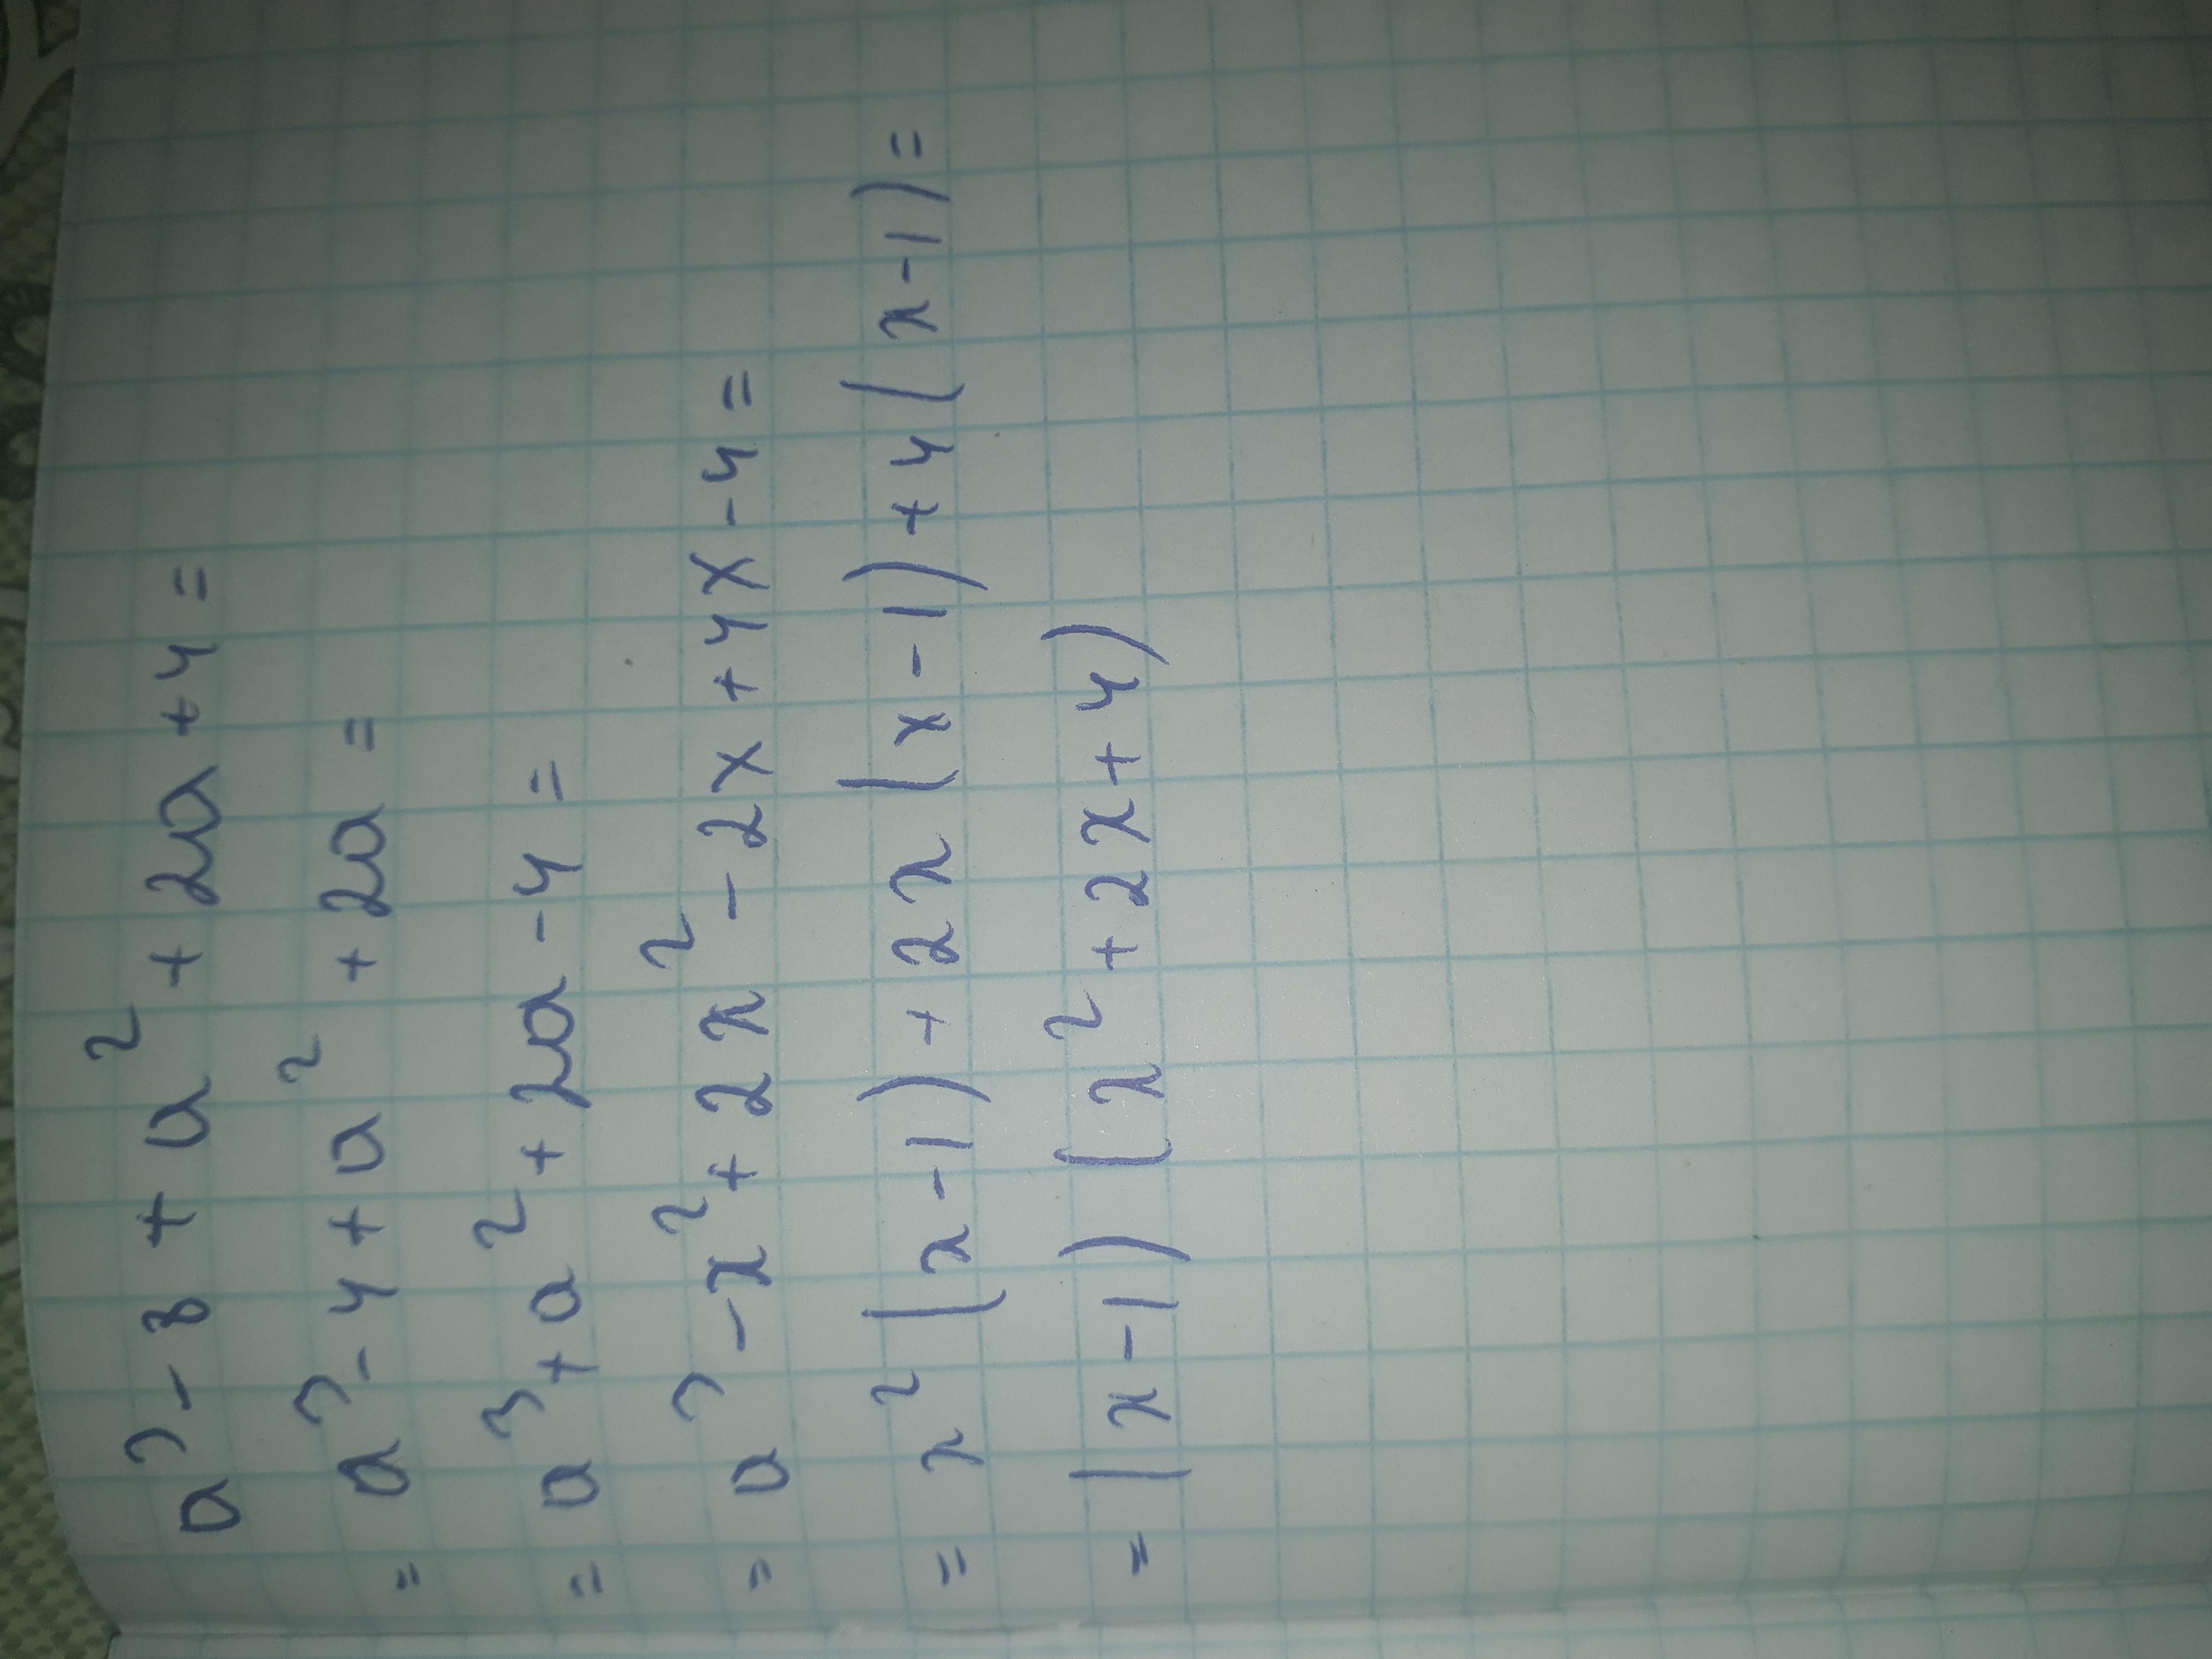 a³ - 8 + a² + 2a + 4 =
= a³ - 4 + a² + 2a =
= a³ + a² + 2a - 4 =
= a³ - x² + 2x² - 2x + 4x - 4 =
= x² (x - 1) + 2x (x - 1) + 4 (x - 1) =
= (x - 1) (x² + 2x + 4)